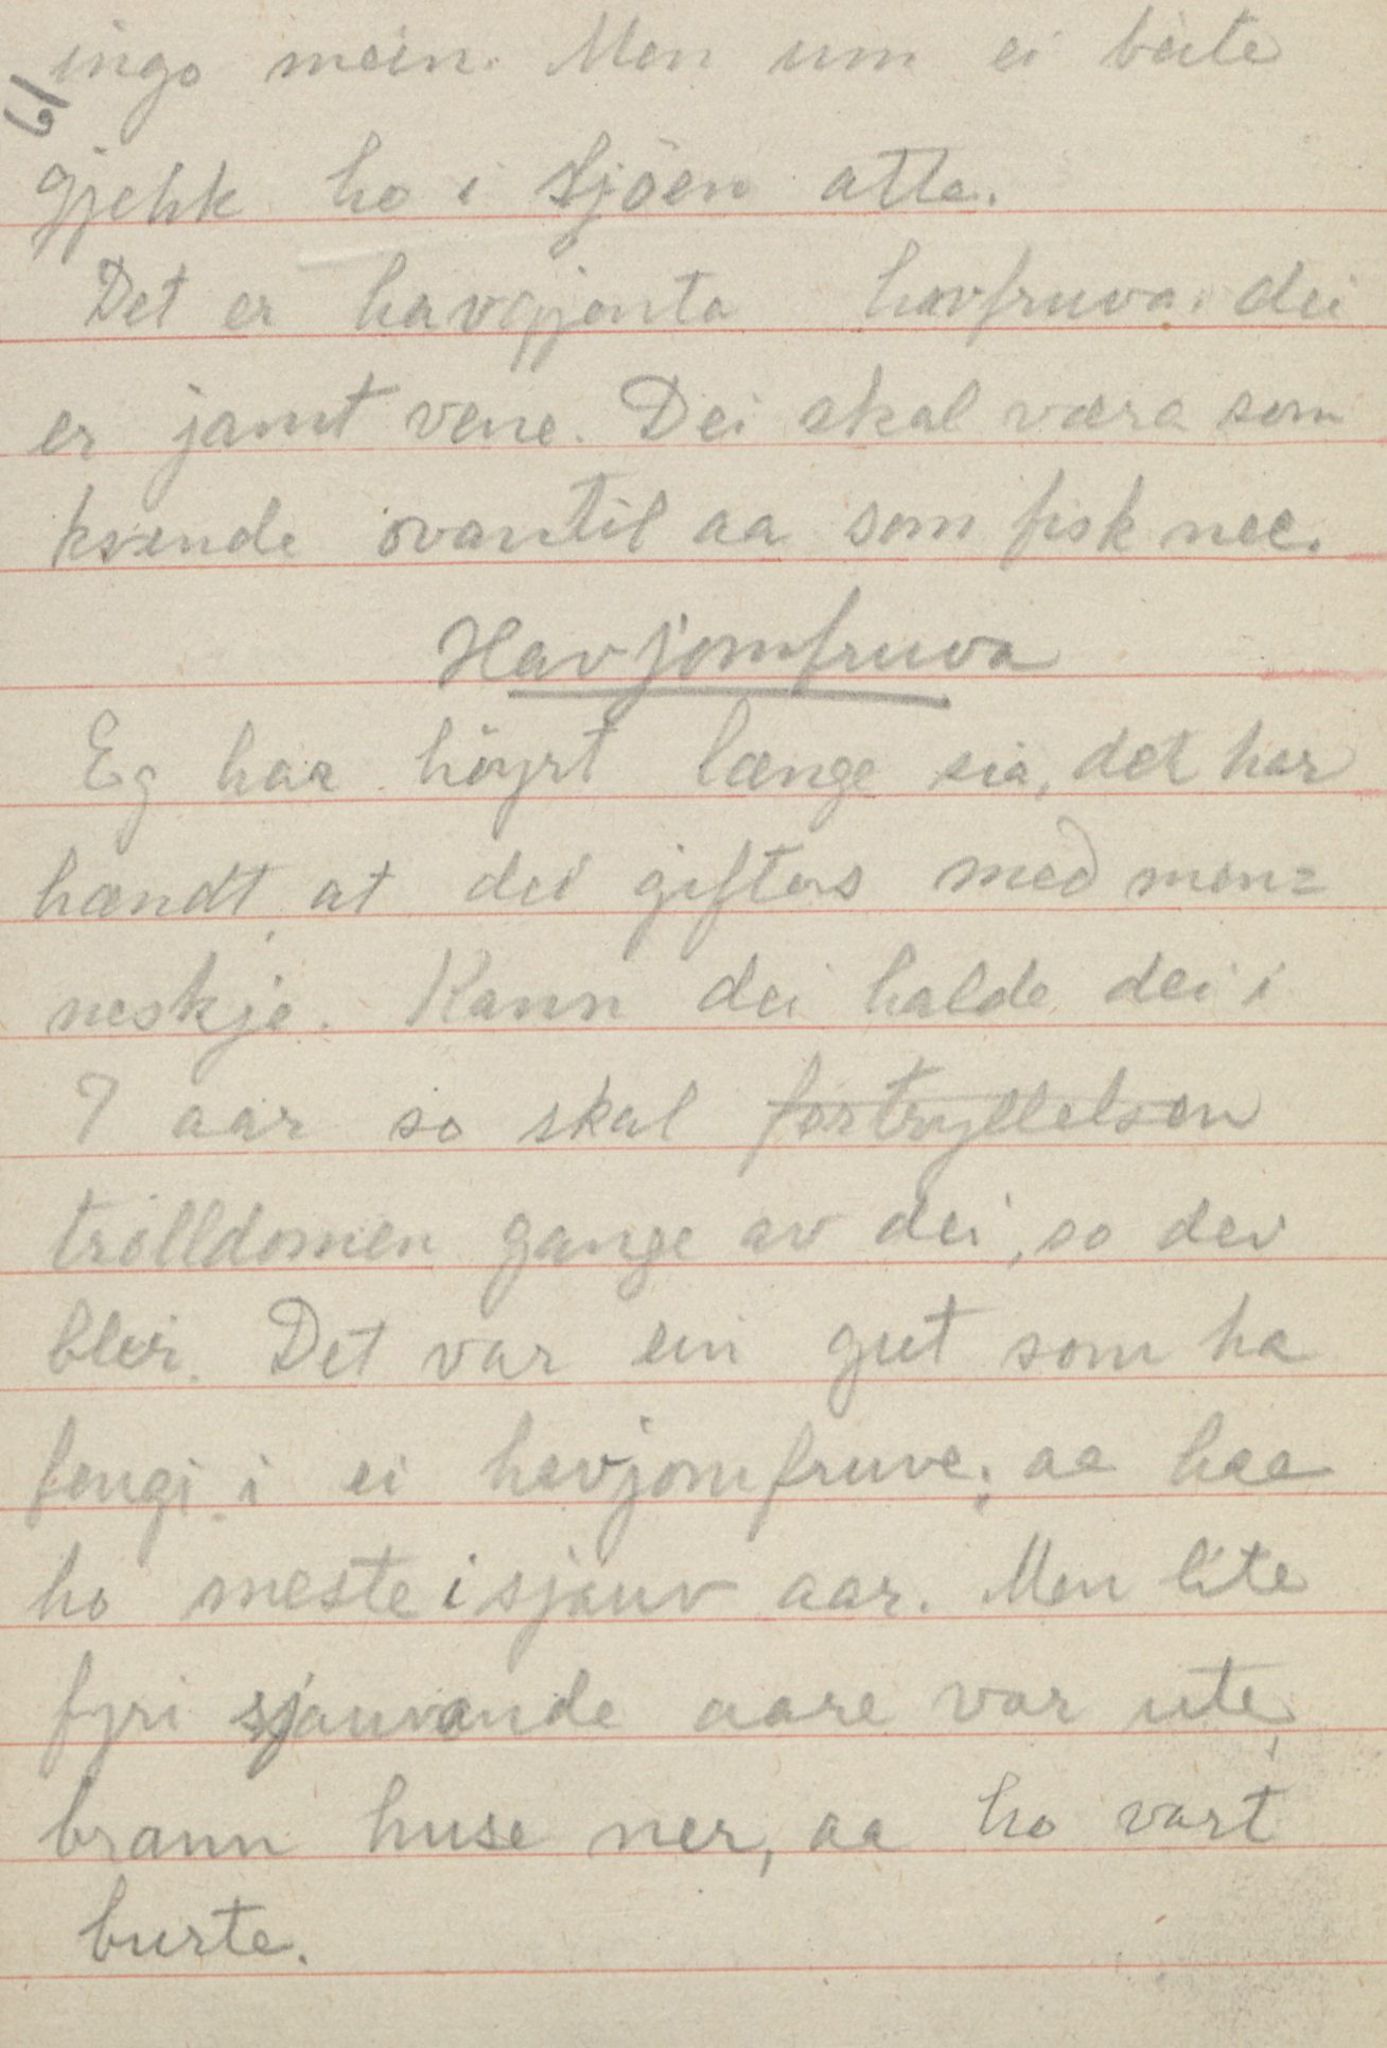 61
ingo mein. Men um ei beite
gjekk ho i sjöen atte.
Det er havgjenta havfruva. dei
er jamt vene. Dei skal væra som
kvende ovantil aa som fisk nee.
Havjomfruva
Eg har höyrt længe sia, det har
hændt at dei giftas med men=
neskje. Kann dei halde dei i
7 aar so skal fortryllelsen
trolldomen gange av dei, so dei
bleir. Det var ein gut som ha
fengi i ei havjomfruve; aa haa
ho meste i sjauv aar. Men lite
fyri sjauvande aare var ute,
brann huse ner, aa ho vart
burte.